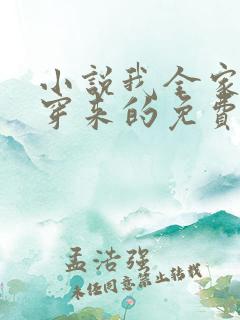 小說我全家
穿來的免費
孟浩强
未经同意禁止转载